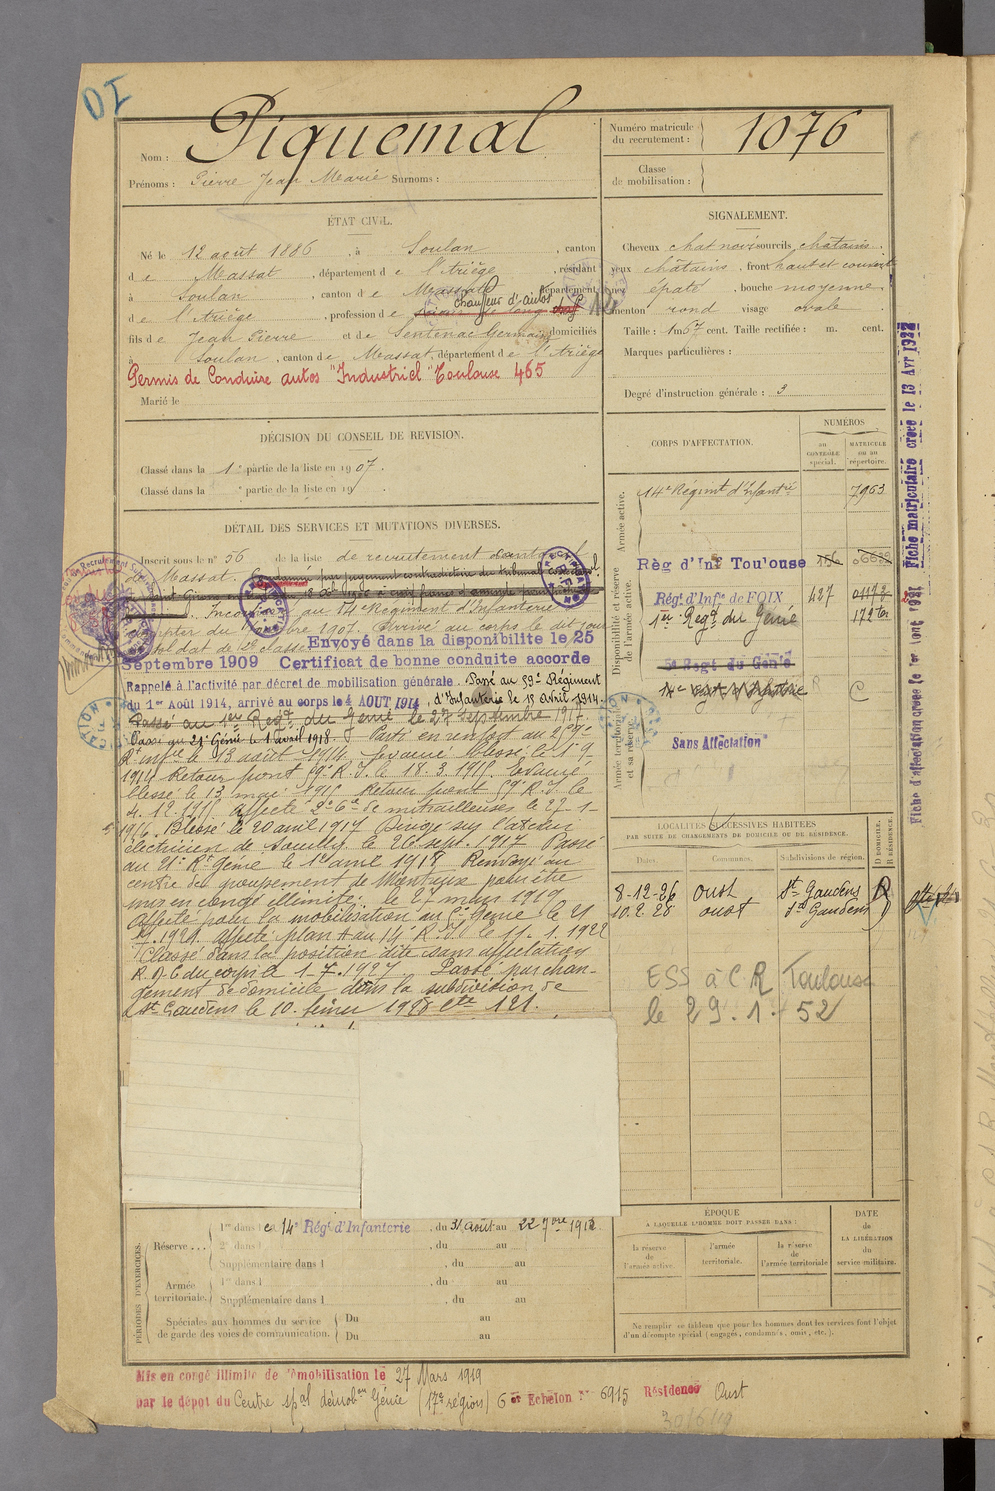 DI
Nom : Piquemal
Prénoms : Pierre Jean Marie Surnoms :
Numéro matricule du recrutement : 1076
Classe de mobilisation :
ÉTAT CIVIL.
Né le 12 août 1886 , à Soulan , canton
de Massat , département de l'Ariège , résidant
à Soulan , canton de Massat , département
chauffeur d'autos
de l'Ariège , profession de
fils de Jean Pierre et de Sentenac Germaine domiciliés
à Soulan , canton de Massat, département de l'Ariège
Permis de Conduire autos "Industriel" Toulouse 465
Marié le
SIGNALEMENT.
Cheveux chat noir sourcils châtains.
yeux châtains . front haut et couvert
nez épaté . bouche moyenne
menton rond visage ovale
Taille : 1m 57 cent. Taille rectifiée : m. cent.
Marques particulières :
Degré d'instruction générale : 3
DÉCISION DU CONSEIL DE REVISION.
Classé dans la 1e partie de la liste en 1907.
Classé dans la e partie de la liste en 19
DÉTAIL DES SERVICES ET MUTATIONS DIVERSES.
Inscrit sous le n° 56 de la liste de recrutement cantonal
de Massat.
Incorporé au 14e Régiment d'Infanterie
1907. Arrivé au corps le dit jour
soldat de 2e classe. Envoyé dans la disponibilité le 25
Septembre 1909 Certificat de bonne conduite accordé
Rappelé à l'activité par décret de mobilisation générale. Passé au 59e Régiment
du 1er Août 1914, arrivé au corps le 4 AOUT 1914 , d'Infanterie le 15 Avril 1914.
Passé au 1er Regt. du Génie le 27 Septembre 1917.
Passé au 21e Génie le 1 avril 1918 Parti en renfort au 259e
Rt infie le 13 août 1914. Evacué blessé le 1-9
1914 Retour front 59e R.I. le 18.3.1915. Evacué
blessé le 13 mai 1915 Retour front 59e R.I. le
4.12.1915 Affecté 2e Cie de mitrailleuses le 27-1-
1916. Blessé le 20 avril 1917 Dirigé sur l'atelier
électricien de Souilly le 26 sept. 1917 Passé
au 21e Rt Génie le 1er avril 1918 Renvoyé au
centre de groupement de Montauze pour être
mis en congé illimité le 27 mars 1919
Affecté pour la mobilisation au Génie le 21
1.1921. Affecté plan A au 14e R.I. le 11.1.1922
Classé dans la position dite sans affectation
R.D.C du corps le 1.7.1927. Passé par chan-
gement de domicile dans la subdivision de
St Gaudens le 10. février 1928 Ctte 121.
CORPS D'AFFECTATION.
NUMÉROS
au CONTRÔLE spécial.
MATRICULE ou au répertoire.
Armée active.
14e Régiment d'Infantrie 7963
Disponibilité et réserve de l'armée active.
Règ d'Inf Toulouse 156
Régt d'Infie de FOIX 427
1er Regt. du Génie
5e Regt du Génie
Armée territoriale et sa réserve.
Sans Affectation
LOCALITÉS SUCCESSIVES HABITÉES
PAR SUITE DE CHANGEMENTS DE DOMICILE OU DE RÉSIDENCE.
Dates. Communes. Subdivisions de région. D DOMICILE. R RÉSIDENCE.
8-12-26 Oust St Gaudens R
10.2.28 Oust St Gaudens D
ESS à C R Toulouse
le 29.1.52
Fiche d'affectation créée le 1er Août 1921 Fiche matriculaire créée le 13 Avr 1922
PÉRIODES D'EXERCICES.
Réserve ...
1re dans le 14e Régt d'Infanterie , du 31 août au 22 7bre 1912
2e dans l , du au
Supplémentaire dans l , du au
Armée territoriale.
1re dans l , du au
Supplémentaire dans l , du au
Spéciales aux hommes du service de garde des voies de communication.
Du au
Du au
ÉPOQUE
À LAQUELLE L'HOMME DOIT PASSER DANS :
la réserve de l'armée active.
l'armée territoriale.
la réserve de l'armée territoriale
DATE de LA LIBÉRATION du service militaire.
Ne remplir ce tableau que pour les hommes dont les services font l'objet
d'un décompte spécial (engagés, condamnés, omis, etc.).
Mis en congé illimité de démobilisation le 27 Mars 1919
par le dépôt du Centre spal démobon Génie (17e région) 6e Echelon N° 6915 Résidence Oust